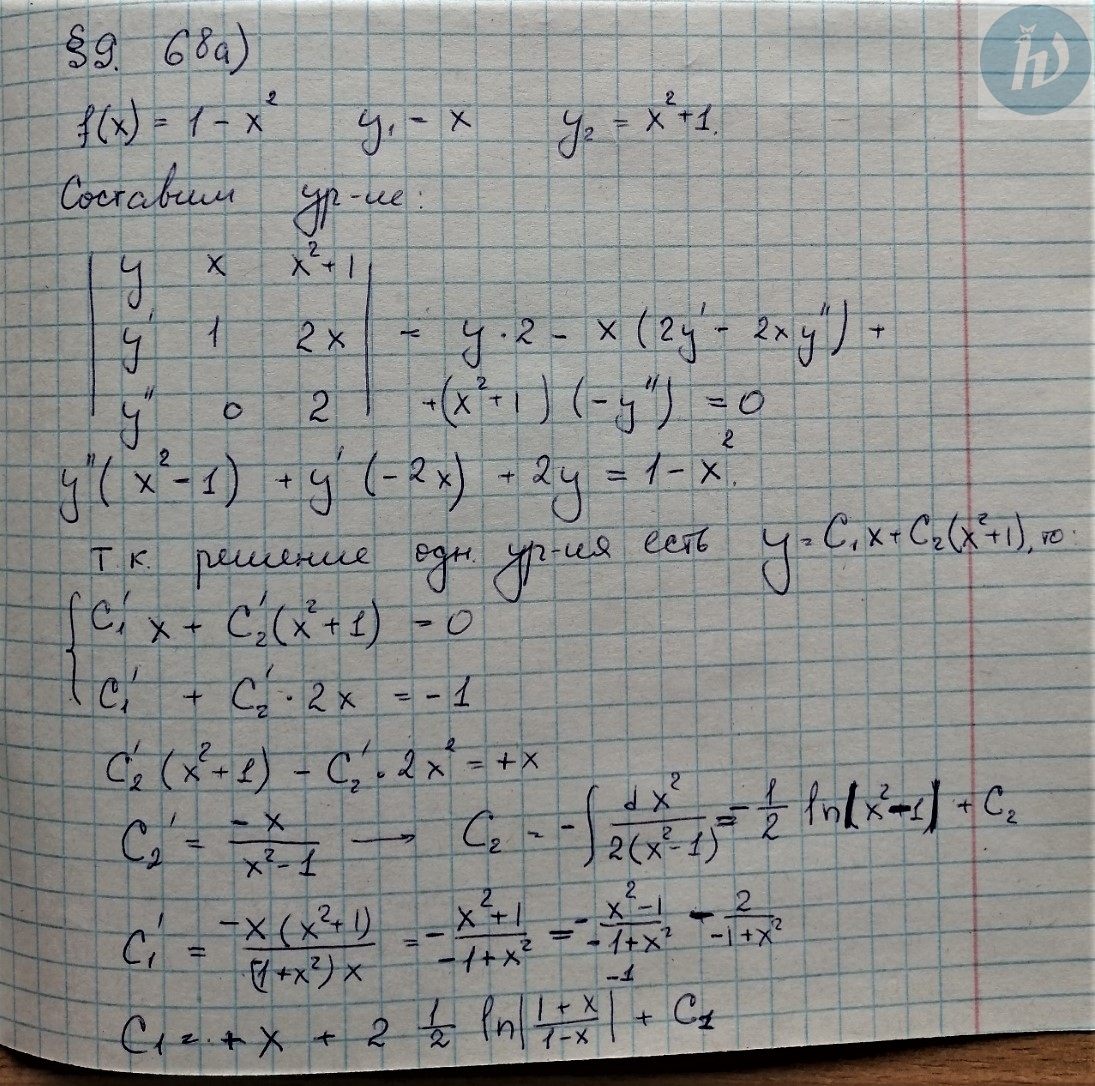 §9. 68а)
f(x) = 1 - x² y₁ = x y₂ = x²+1.
Составим ур-ие:
| y x x²+1 |
| y' 1 2x | = y·2 - x(2y' - 2xy'') +
| y'' 0 2 | +(x²+1)(-y'') = 0
y''(x²-1) + y'(-2x) + 2y = 1-x².
т.к. решение одн. ур-ия есть y = C₁x + C₂(x²+1), то:
{ C₁'x + C₂'(x²+1) = 0
{ C₁' + C₂'·2x = -1
C₂'(x²+1) - C₂'·2x² = +x
C₂' = -x/(x²-1) → C₂ = -∫ dx²/(2(x²-1)) = -1/2 ln|x²-1| + C₂
C₁' = -x(x²+1)/((1+x²)x) = -(x²+1)/(-1+x²) = -(x²-1)/(-1+x²) - 2/(-1+x²)
-1
C₁ = + x + 2 1/2 ln|(1+x)/(1-x)| + C₁